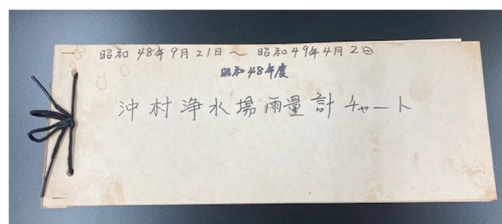 昭和48年9月21日〜昭和49年4月2日
昭和48年度
沖村浄水場雨量計チャート